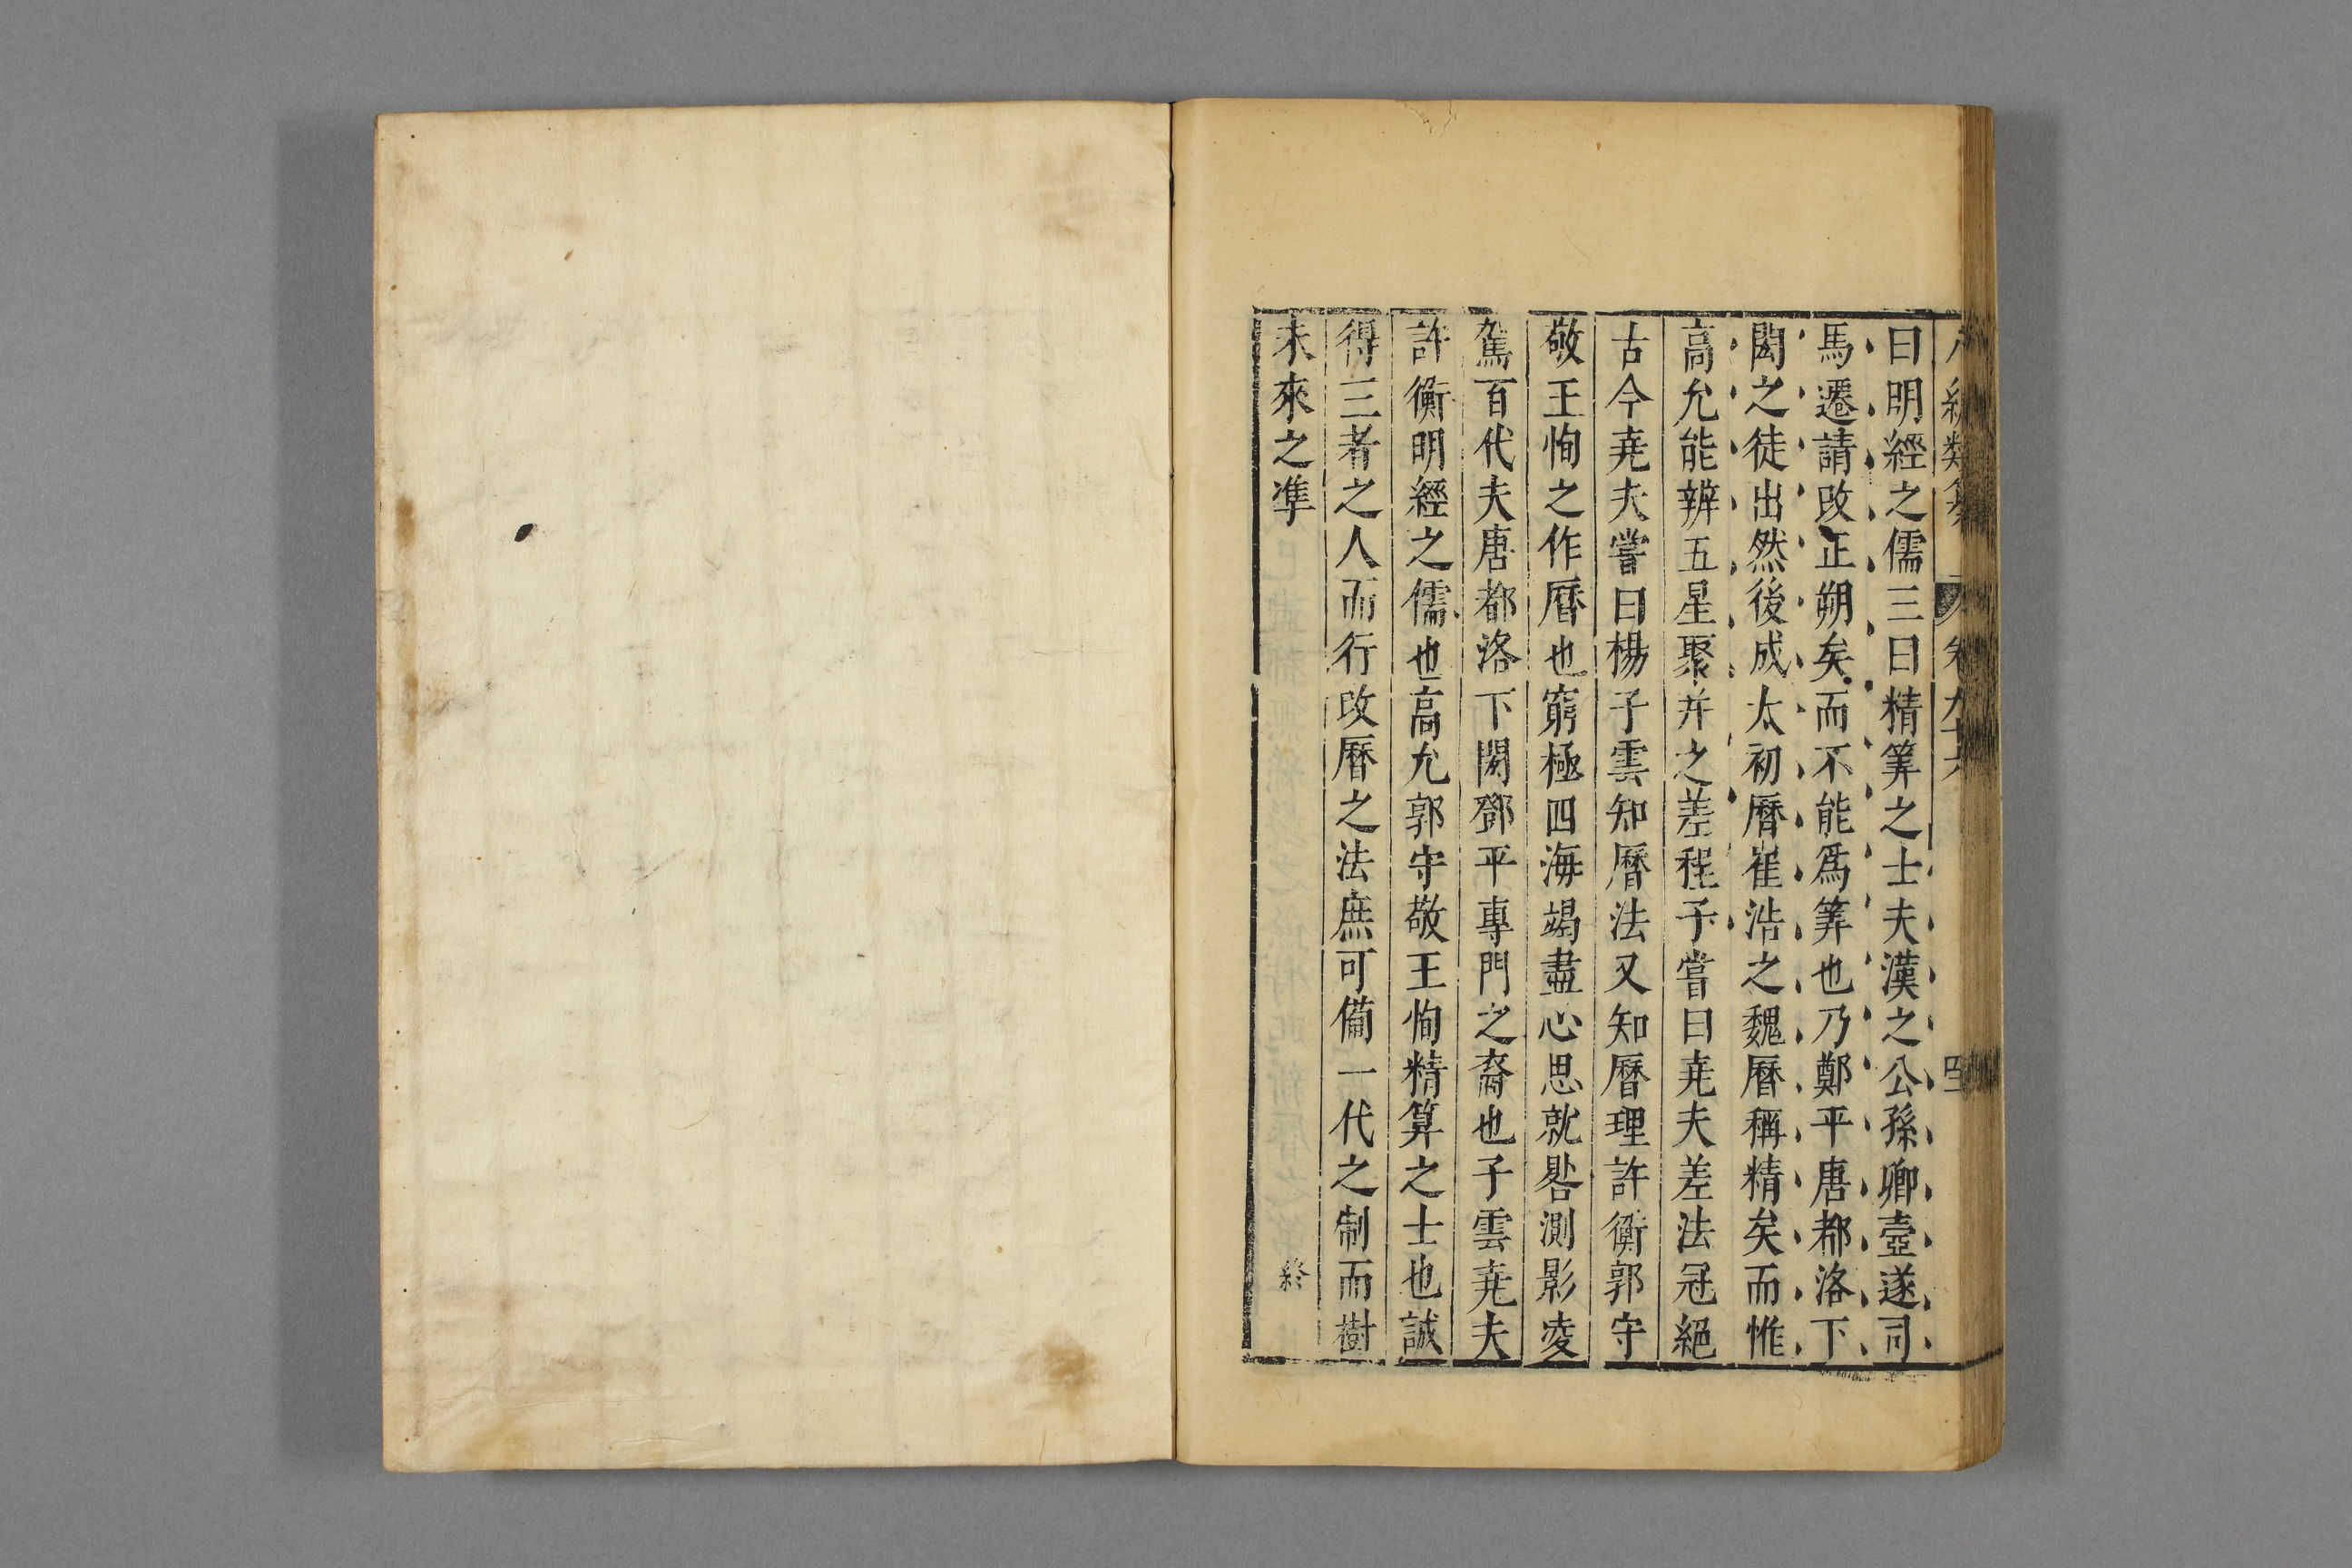 編類纂 卷九十六
曰明經之儒三曰精筭之士夫漢之公孫卿壺遂司
馬遷請改正朔矣而不能爲筭也乃鄭平唐都洛下
閎之徒出然後成太初曆崔浩之魏曆稱精矣而惟
高允能辨五星聚井之差程子嘗曰堯夫差法冠絕
古今堯夫嘗曰楊子雲知曆法又知曆理許衡郭守
敬王恂之作曆也窮極四海竭盡心思就晷測影凌
駕百代夫唐都洛下閎鄧平專門之裔也子雲堯夫
許衡明經之儒也高允郭守敬王恂精算之士也誠
得三者之人而行改曆之法庶可備一代之制而樹
未來之準
終